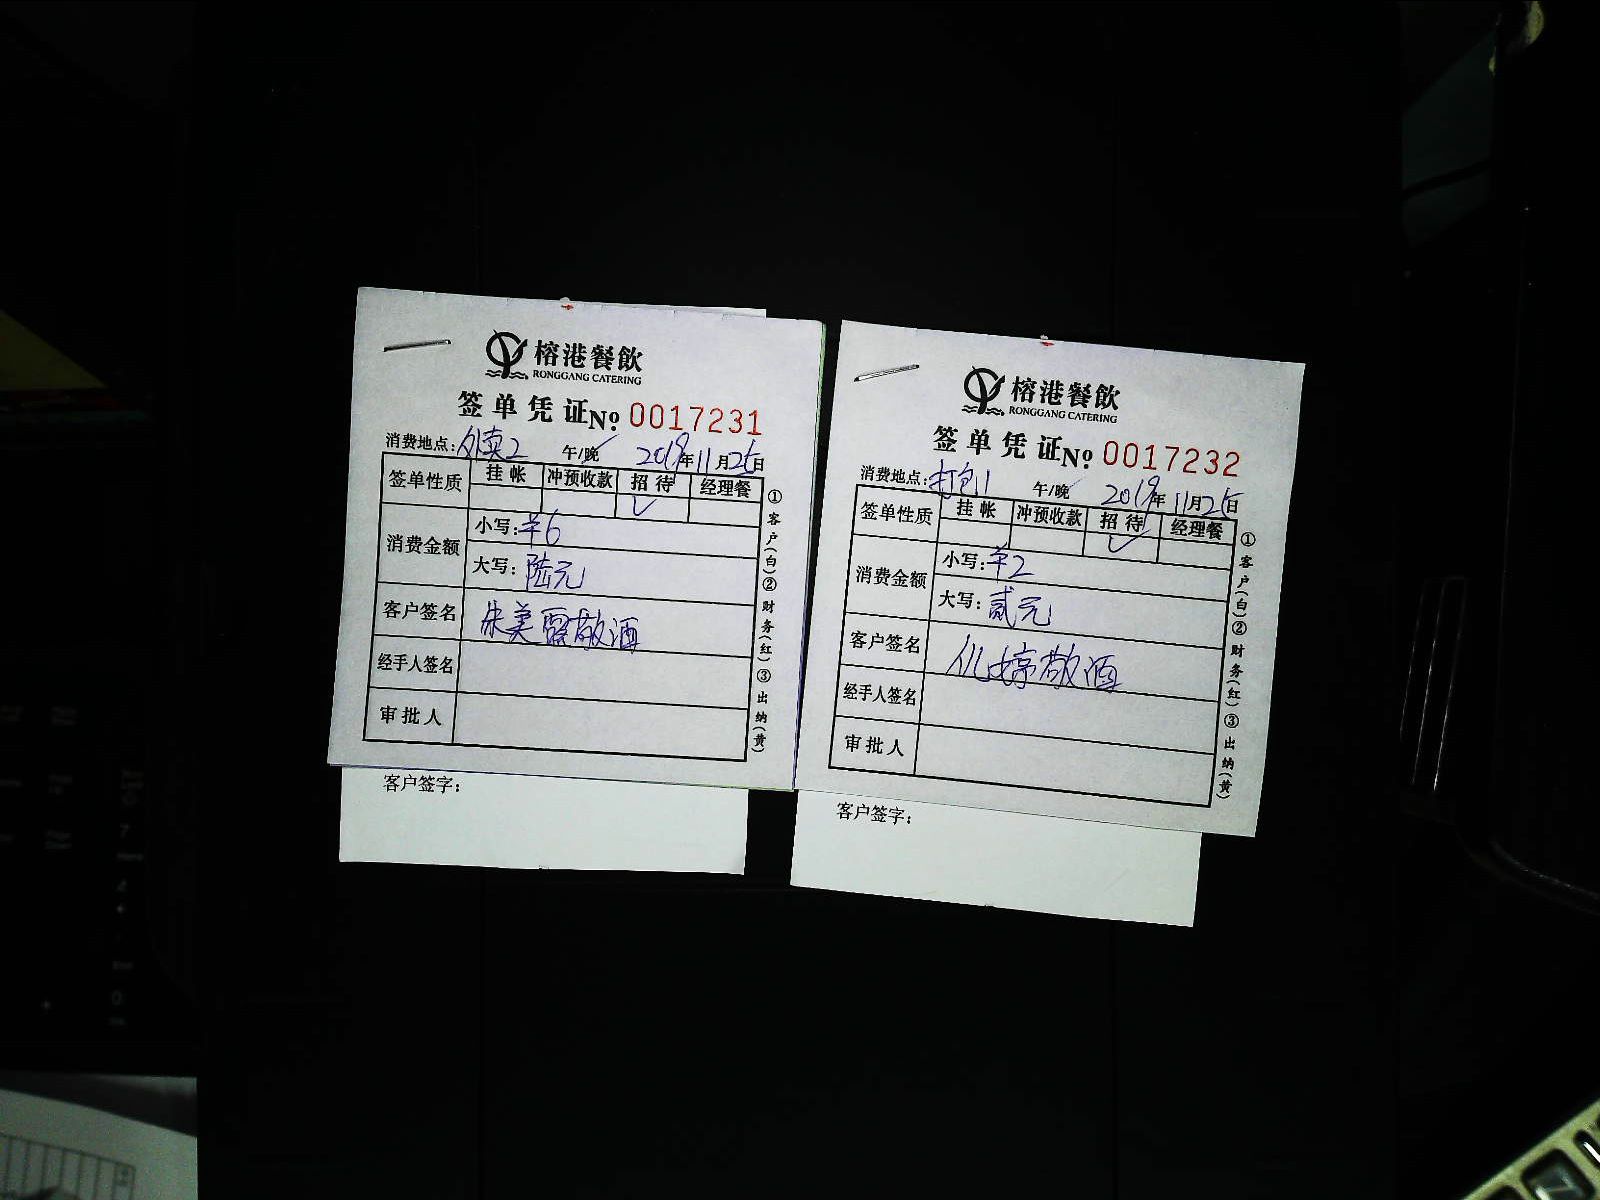 榕港餐飲
RONGGANG CATERING
签单凭证№ 0017231
消费地点:外卖2 午/晚 2019年11月26日
签单性质 挂帐 冲预收款 招待 经理餐
✓
消费金额 小写:¥6
大写:陆元
客户签名 朱美霞敬酒
经手人签名
审批人
①客户(白)②财务(红)③出纳(黄)
客户签字:
榕港餐飲
RONGGANG CATERING
签单凭证№ 0017232
消费地点:打包1 午/晚 2019年11月26日
签单性质 挂帐 冲预收款 招待 经理餐
✓
消费金额 小写:¥2
大写:贰元
客户签名 婷敬酒
经手人签名
审批人
①客户(白)②财务(红)③出纳(黄)
客户签字: